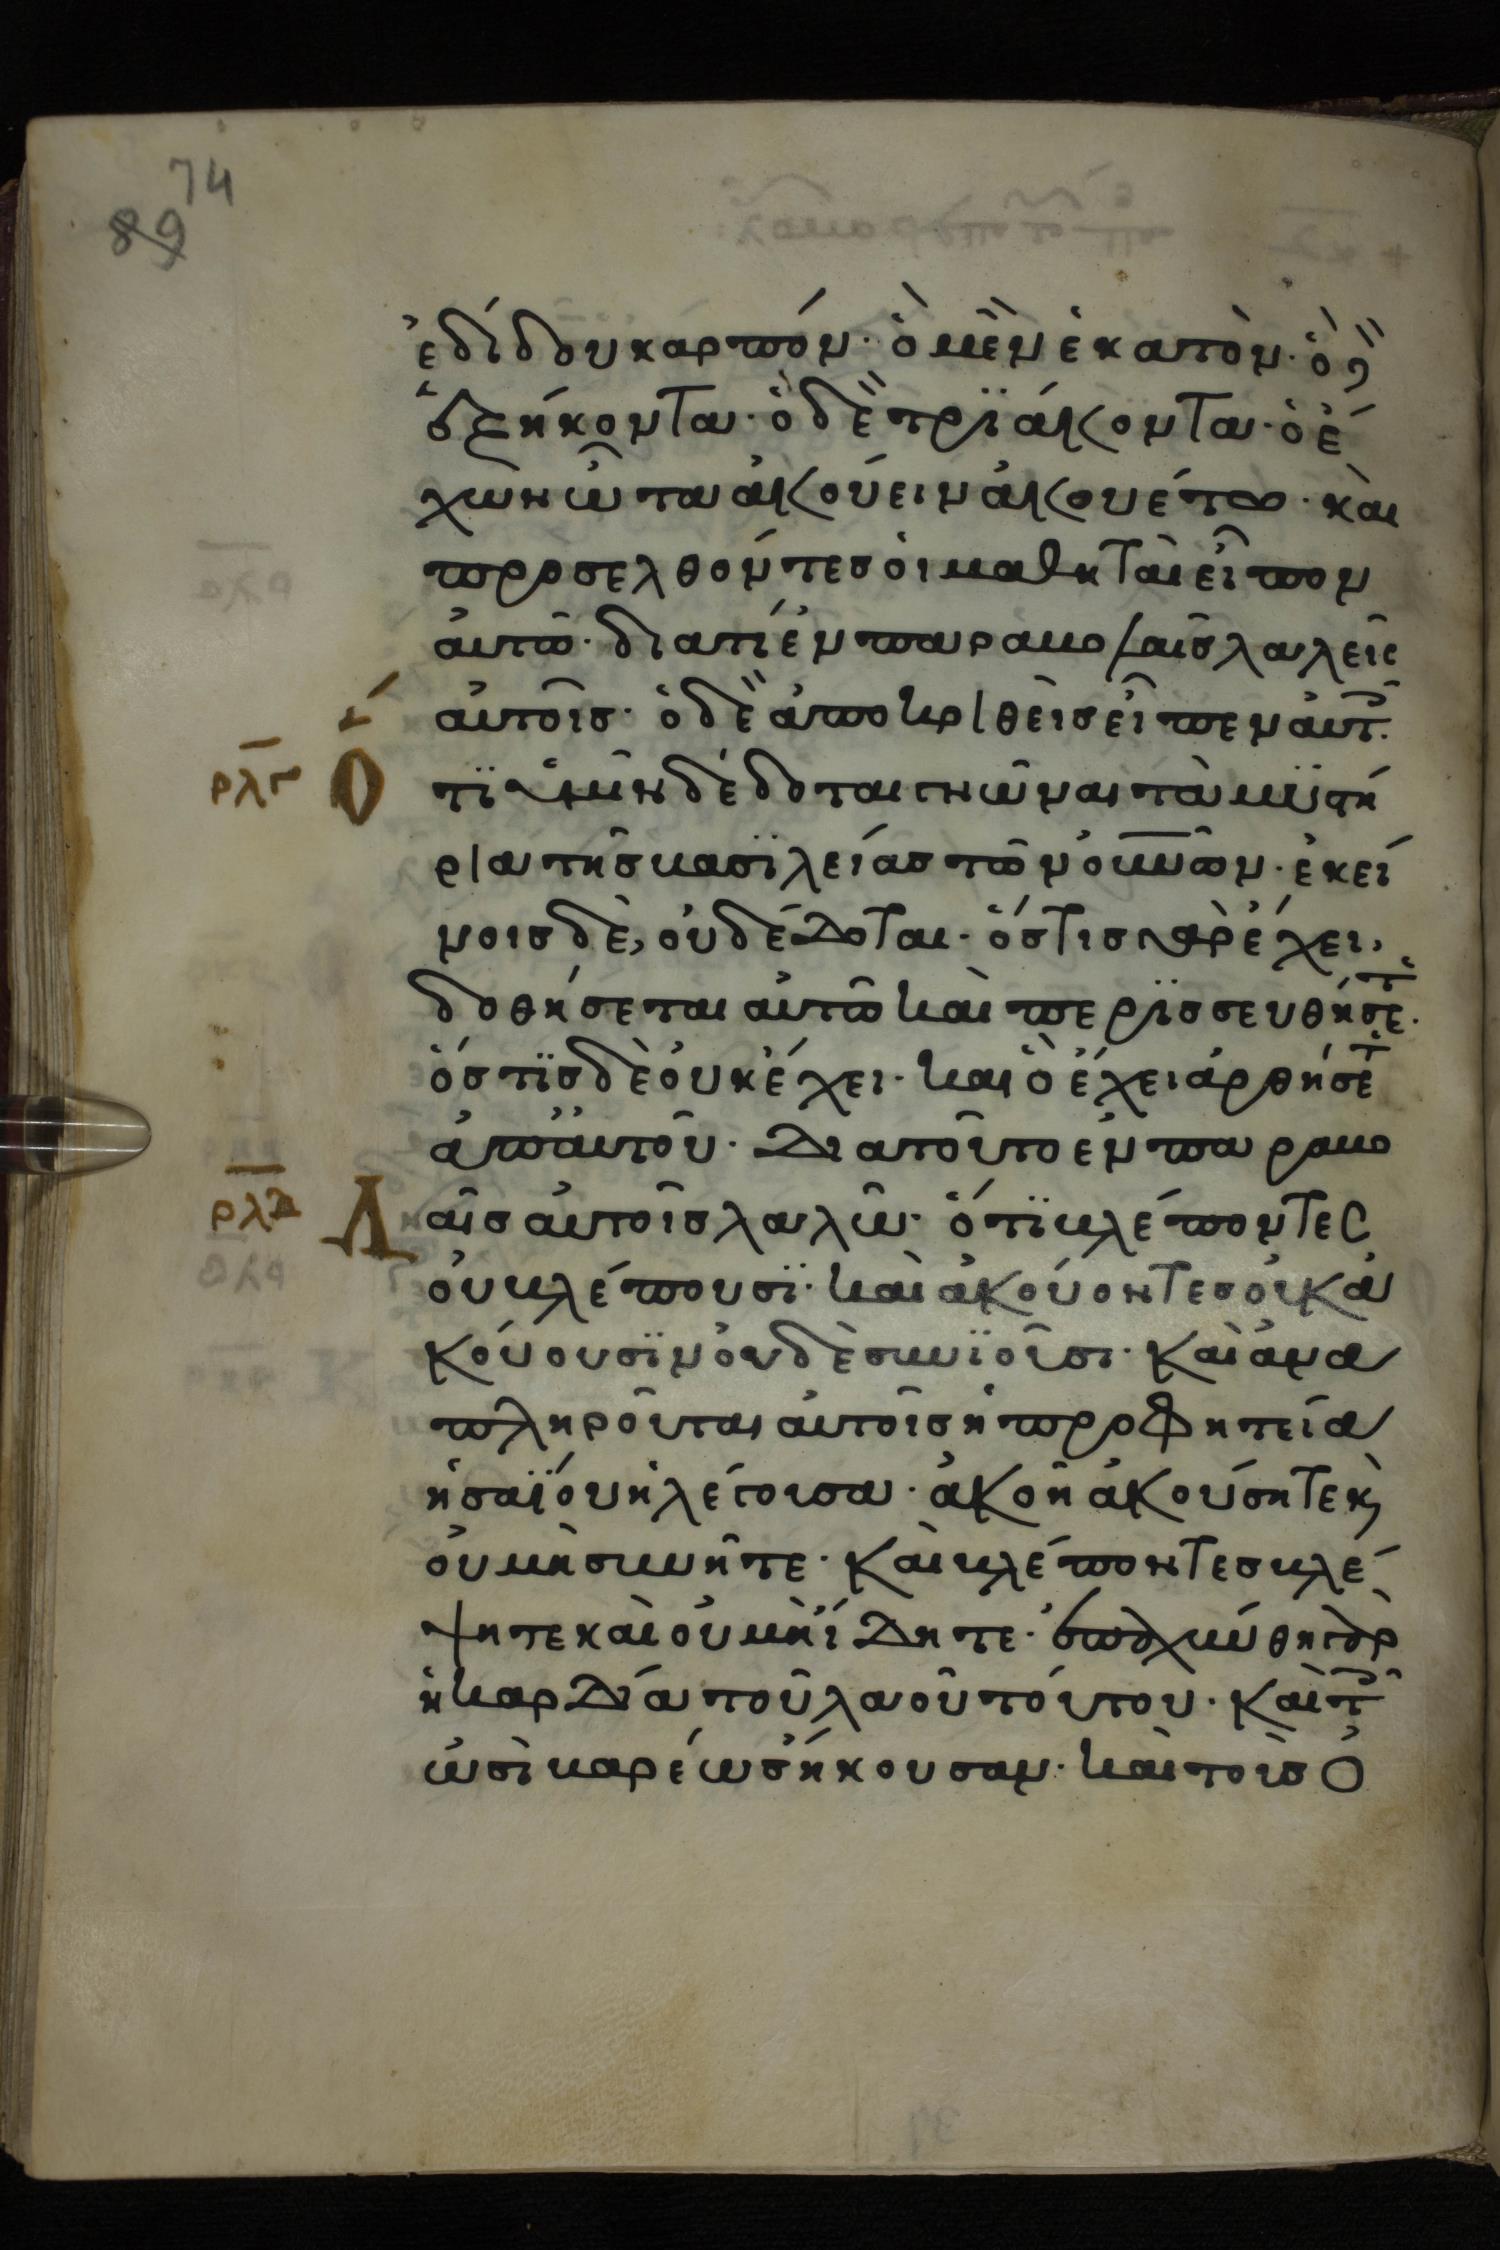 74
89
ἐδίδου καρπόν· ὁ μὲν ἑκατὸν· ὁ δὲ
ἑξήκοντα· ὁ δὲ τριάκοντα· ὁ ἔ
χων ὦτα ἀκούειν ἀκουέτω· καὶ
προσελθόντες οἱ μαθηταὶ εἶπον
αὐτῶ· διατί ἐν παραβολαῖς λαλεῖς
αὐτοῖς· ὁ δὲ ἀποκριθεὶς εἶπεν αὐτ
ρλγ Ὅ
τϊ ὑμῖν δέδοται γνῶναι τὰ μυστή
ρια τῆς βασϊλείας τῶν οὐνῶν· ἐκεί
νοις δὲ, οὐ δέδοται· ὅστις γὰρ ἔχει,
δοθήσεται αὐτῶ καὶ περϊσσευθήσετ
ὅστϊς δὲ οὐκ ἔχει· καὶ ὃ ἔχει ἀρθήσετ
ἀπ' αὐτοῦ· Διατοῦτο ἐν παραβο
ρλδ Δ
αῖς αὐτοῖς λαλῶ· ὅτϊ βλέποντες
οὐ βλέπουσϊ· καὶ ἀκούοντες οὐκ ἀ
κούουσϊν οὐδὲ συνϊοῦσι· Καὶ ἀνα
πληροῦται αὐτοῖς ἡ προφητεία
ἡσαϊου ἡ λέγουσα· ἀκοῆ ἀκούσητε κ
οὐ μὴ συνῆτε· Καὶ βλέποντες βλέ
ψητε καὶ οὐ μὴ ἴδητε· ἐπαχύνθη γὰρ
ἡ καρδία τοῦ λαοῦ τούτου· Καὶ τ
ὠσὶ βαρέως ἤκουσαν· καὶ τοὺς ὀ